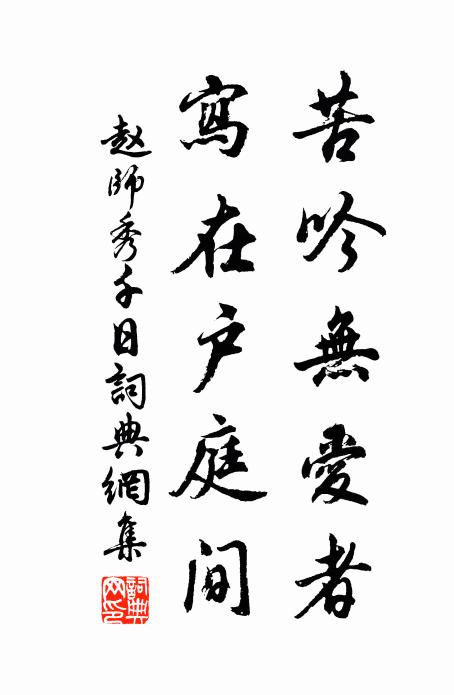 苦吟無愛者
寫在户庭间
赵師秀千日詞典網集
詞典
网印